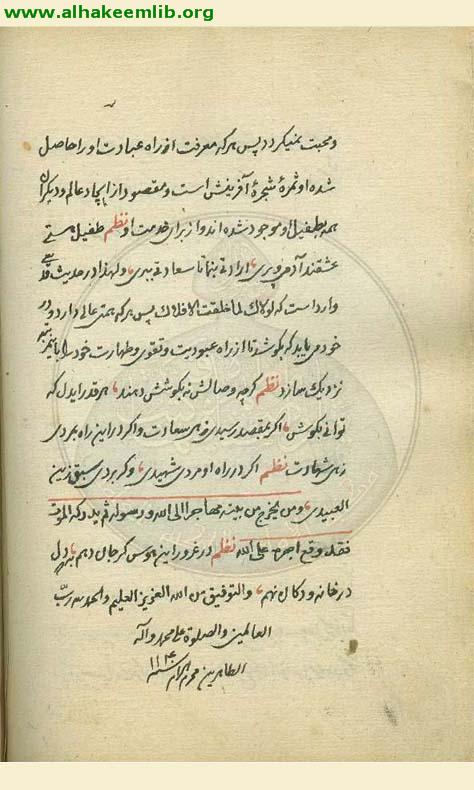 www.alhakeemlib.org
ومحبت نمیکردد پس هرکه معرفت از راه عبادت او را حاصل
شده او ثمرهٔ شجرهٔ آفرینش است و مقصود از ایجاد عالم و دیگران
همه بطفیل او موجود شده‌اند و از برای خدمت او نظم طفیل هستی
عشقند آدمی و پری ارادتی بنما تا سعادتی ببری ولهذا در حدیث قدسی
وارد است که لولاک لما خلقت الافلاک پس هرکه همتی عالی دارد و در
خود می‌یابد که بکوشد تا از راه عبودیت و تقوی و طهارت خود را
نزدیک سازد نظم کرچه وصالش نه بکوشش دهند هر قدر ایدل که
توانی بکوش اکر بمقصد رسید زهی سعادت و اکر در این راه بمردی
زهی شهادت نظم اکر در راه او مردی شهیدی وکر بردی سبق زین
العبیدی ومن یخرج من بیته مهاجرا الی الله ورسوله ثم یدرکه الموت
فقد وقع اجره علی الله نظم در غرور این هوس کر جان دهم به که دل
در خانه و دکان نهم والتوفیق من الله العزیز العلیم والحمد لله ربّ
العالمین والصلوة علی محمد وآله
الطاهرین محرم الحرام سنه